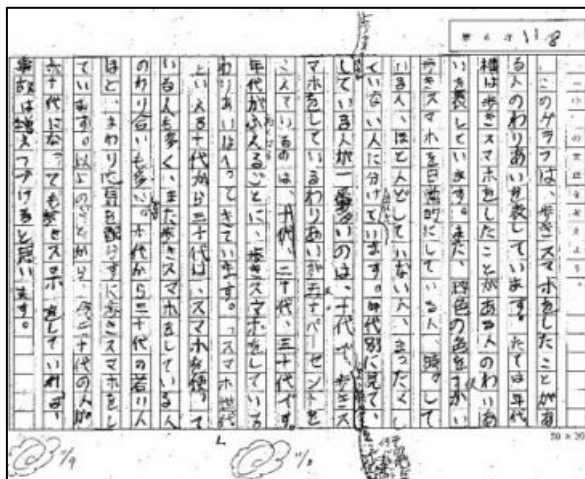 118
このグラフは、歩きスマホをしたことがあ
る人のわりあいを表しています。たては年代、
横は歩きスマホをしたことがある人のわりあ
いを表しています。また、四色の色をつかい
歩きスマホを日常的にしている人、時々して
いる人、ほとんどしていない人、まったくし
ていない人に分けています。年代別に見てい
している人が一番多いのは、十代で、歩きス
マホをしているわりあいが五十パーセントを
こえているのは、十代、二十代、三十代です。
年代がふえるごとに、歩きスマホをしている
わりあいはへってきています。「スマホ世代
といえる十代から三十代は、スマホを使って
いる人も多く、また歩きスマホをしている人
のわり合いも多い。十代から三十代の若い人
ほど、まわりに気を配らずに歩きスマホをし
ています。以上のことから、今二十代の人が
六十代になっても歩きスマホをしていれば、
事故は増えつづけると思います。
20×20
11/8
11/9